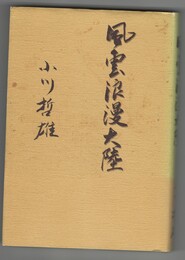 風雲浪漫大陸
小川哲雄